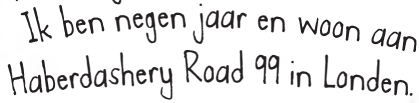 Ik ben negen jaar en woon aan
Haberdashery Road 99 in Londen.